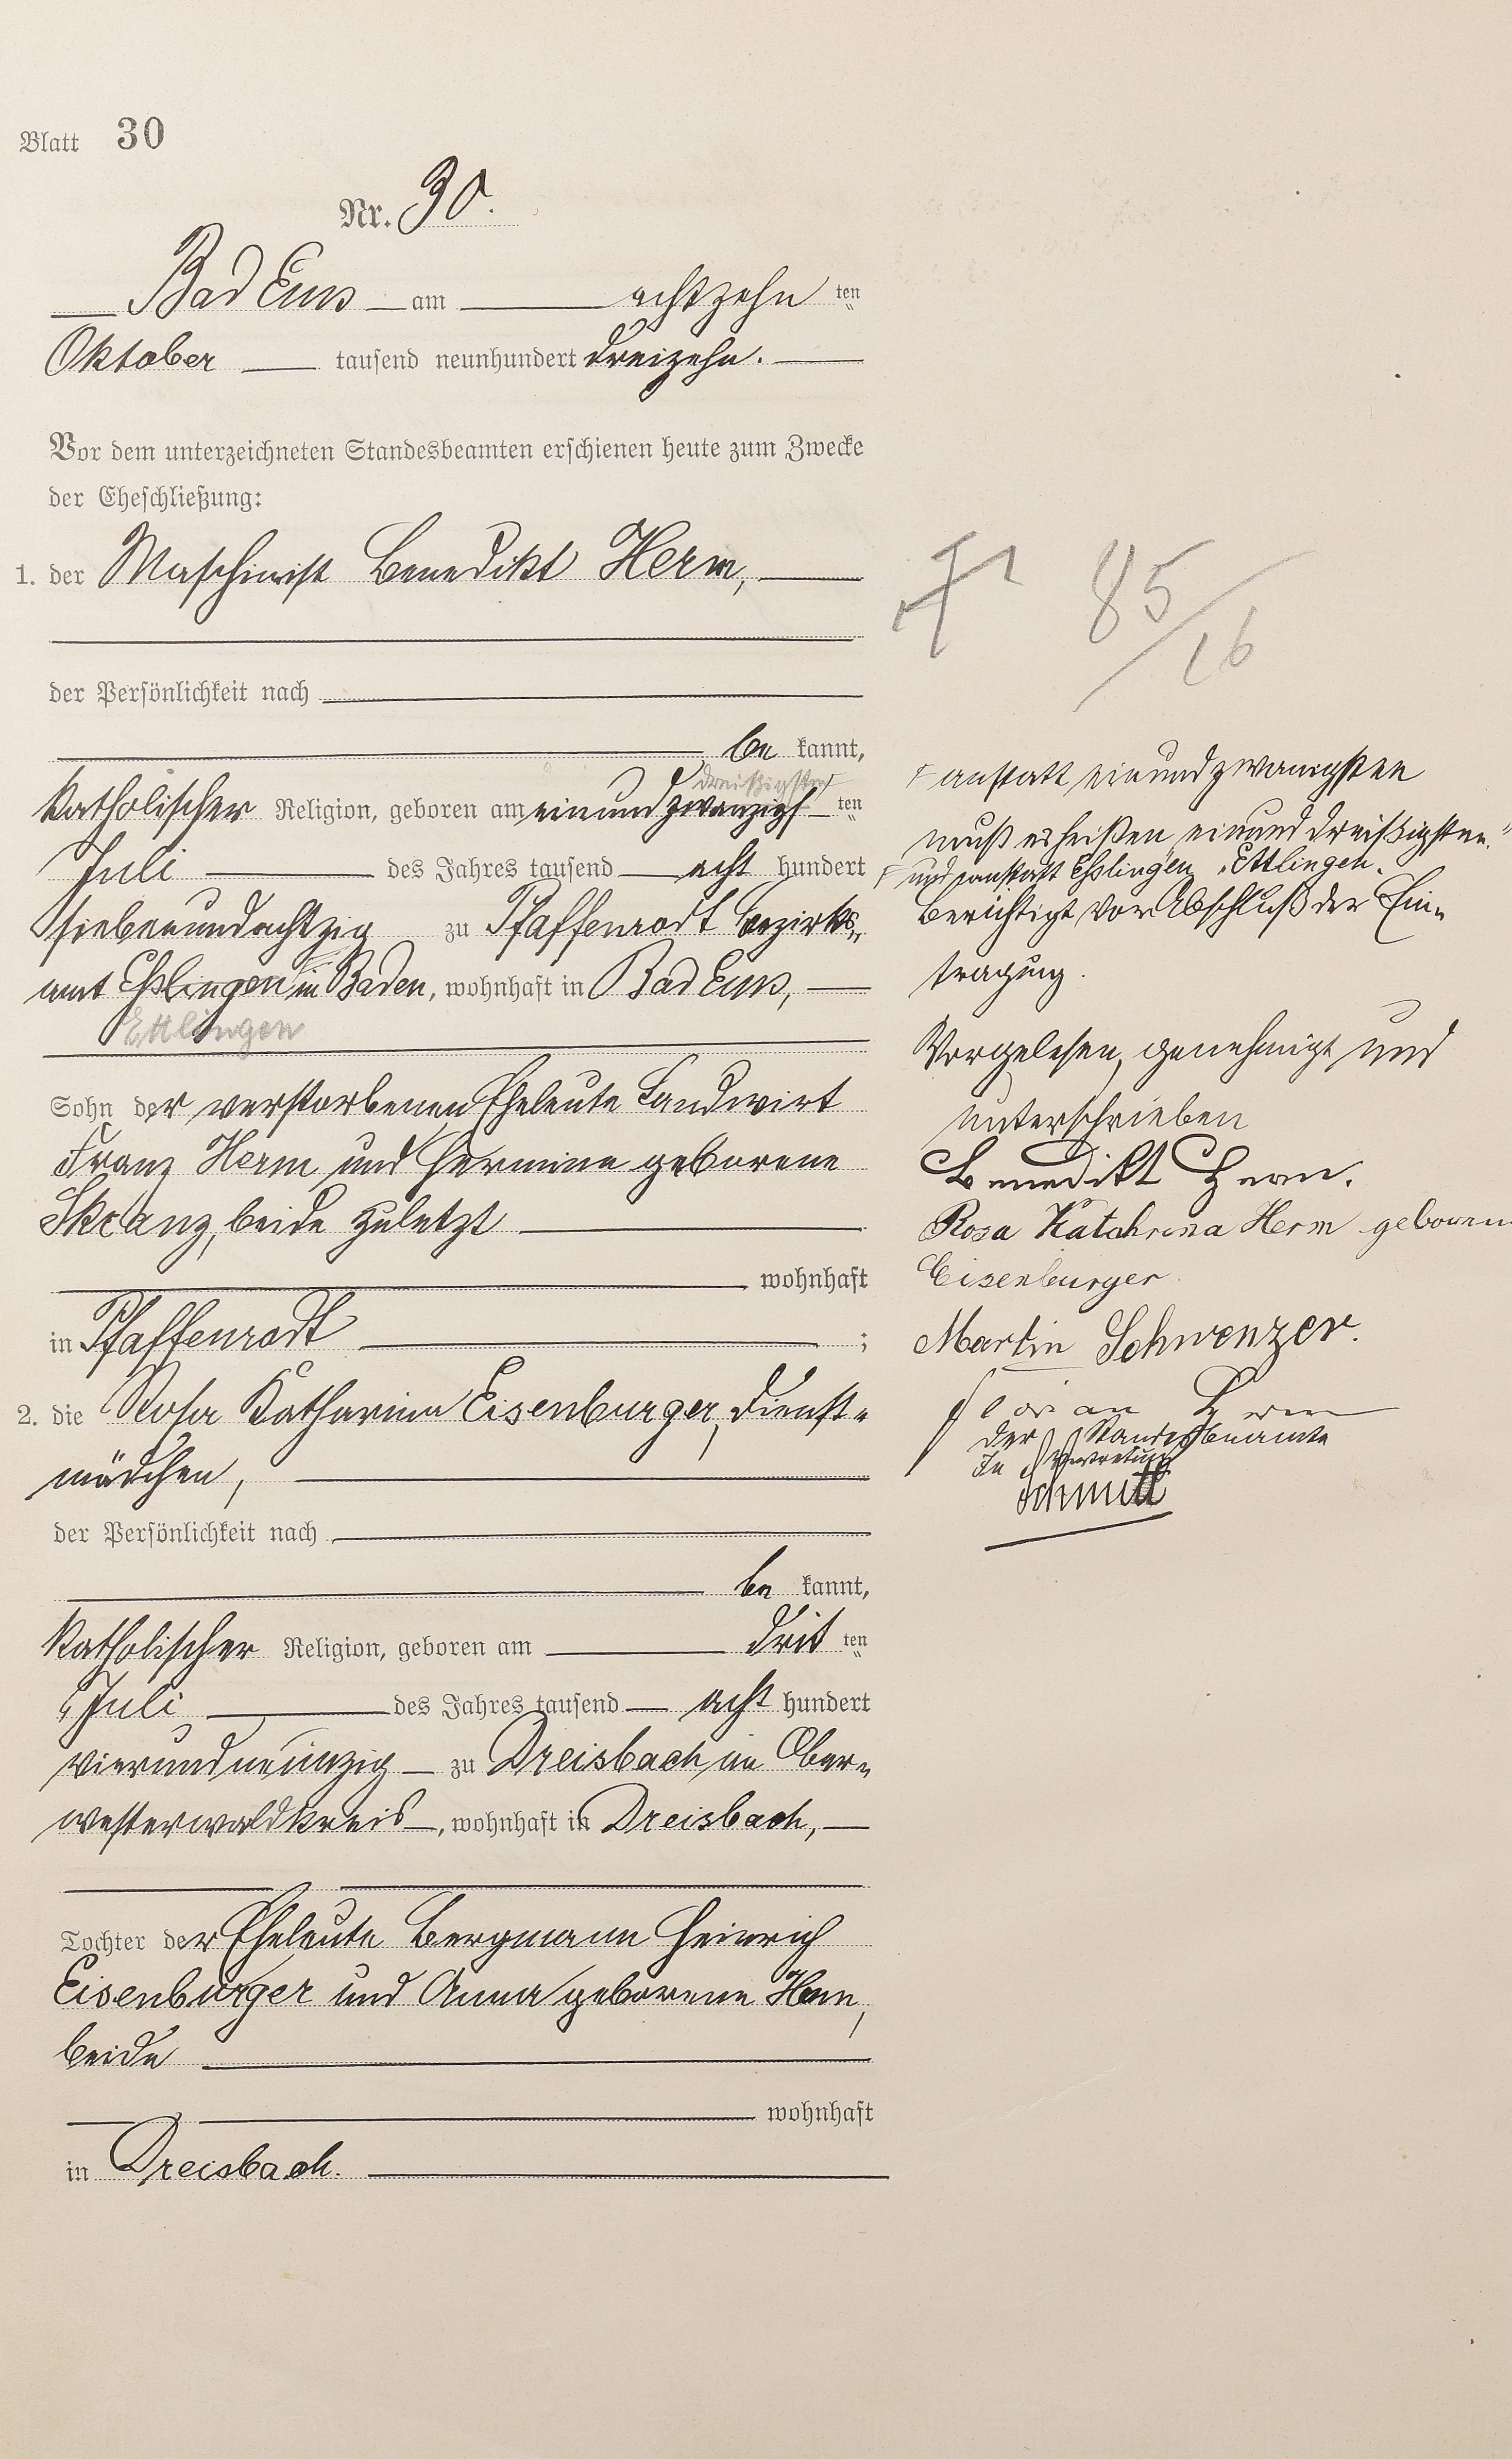 Blatt 30
Nr. 30.
Bad Ems am achtzehn ten
Oktober tausend neunhundert dreizehn.
Vor dem unterzeichneten Standesbeamten erschienen heute zum Zwecke
der Eheschließung:
1. der Maschinist Benedikt Herm,
der Persönlichkeit nach
be kannt,
dreißigsten
katholischer Religion, geboren am einundzwanzigs ten
Juli des Jahres tausend acht hundert
siebenundachtzig zu Pfaffenrodt Bezirks-
amt Eßlingen in Baden, wohnhaft in Bad Ems,
Ettlingen
Sohn der verstorbenen Eheleute Landwirt
Franz Herm und Hermine geborene
Skranz, beide zuletzt
wohnhaft
in Pfaffenrodt ;
2. die Rosa Katharina Eisenburger, Dienst-
mädchen,
der Persönlichkeit nach
be kannt,
katholischer Religion, geboren am drit ten
Juli des Jahres tausend acht hundert
vierundneunzig zu Dreisbach im Ober-
westerwaldkreis, wohnhaft in Dreisbach,
Tochter der Eheleute Bergmann Heinrich
Eisenburger und Anna geborene Henn,
beide
wohnhaft
in Dreisbach.
85/16
anstatt einundzwanigsten
muß es heißen einund dreißigsten"
und anstatt Eßlingen „Ettlingen.
Berichtigt vor Abschluß der Ein-
tragung.
Vorgelesen, genehmigt und
unterschrieben
Benedikt Herm.
Rosa Katahrina Herm geborene
Eisenburger
Martin Schwenzer.
Florian Herm
Der Standesbeamte
In Vertretung
Schmitt